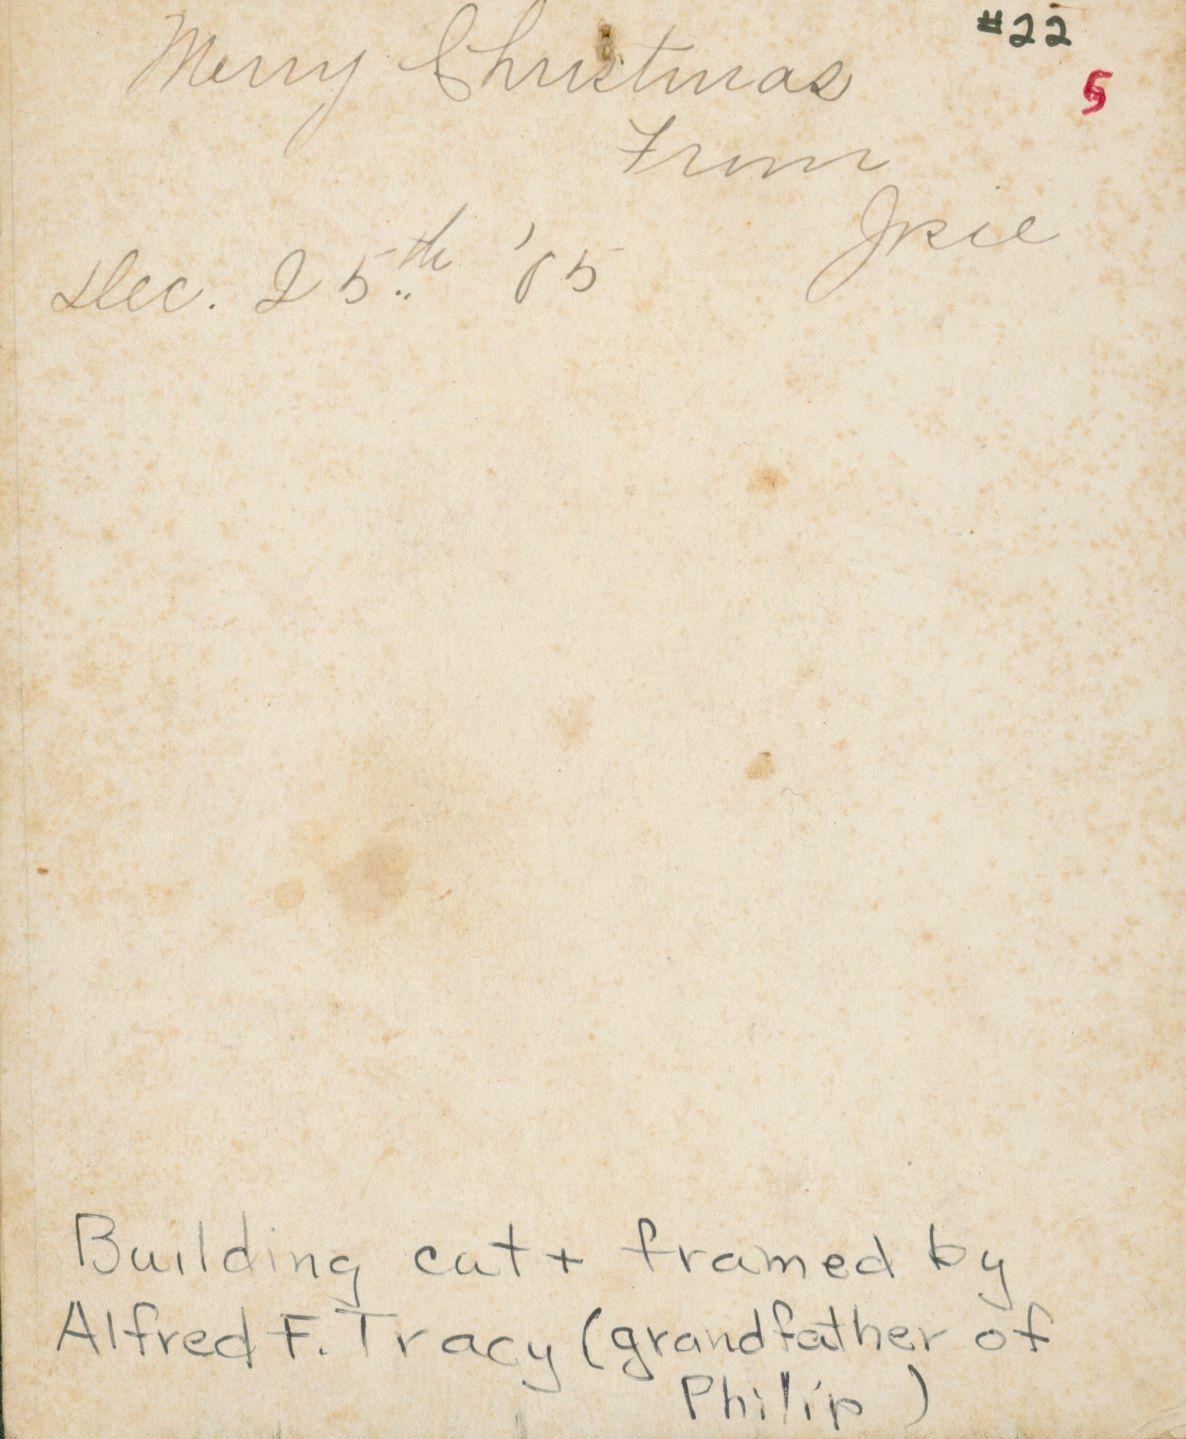 #22
5
Merry Christmas
From
Dec. 25th '05
Building cut + framed by
Alfred F. Tracy (grandfather of
Philip)